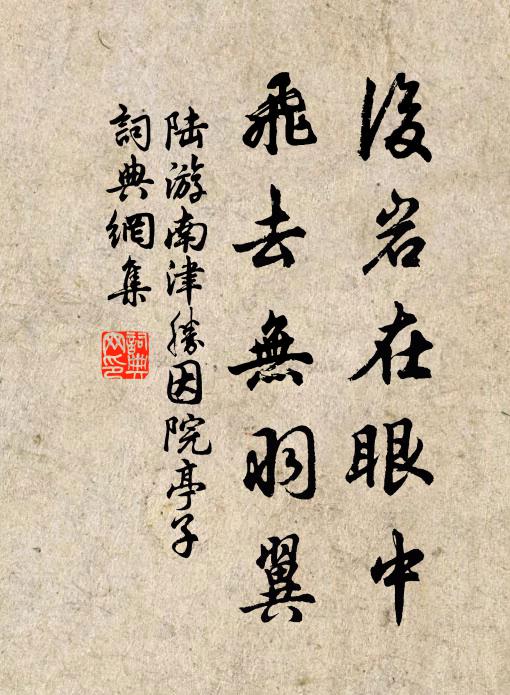 後岩在眼中
飛去無羽翼
陸游南津勝因院亭子
詞典網集
詞典
网印